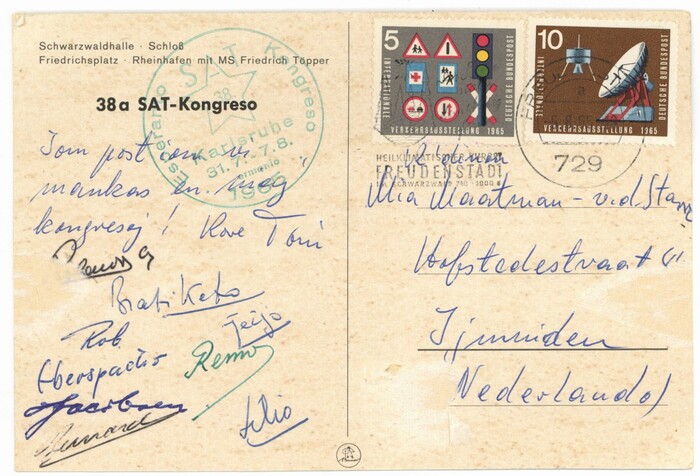 Schwarzwaldhalle · Schloß
Friedrichsplatz · Rheinhafen mit MS Friedrich Töpper
38a SAT-Kongreso
Esperanto SAT Kongreso
38.
Karlsruhe
31.7.-7.8.
Germanio
1965
Iom post iom vi
mankas en niaj
kongresoj! Kore Toni
Brati Keto
Rob.
Teĵo
Eberspacho
Remo
Jacobsen
Bernard
Lilio
5
INTERNATIONALE
VERKEHRSAUSSTELLUNG 1965
DEUTSCHE BUNDESPOST
10
INTERNATIONALE
VERKEHRSAUSSTELLUNG 1965
DEUTSCHE BUNDESPOST
HEILKLIMATISCHER KURORT
FREUDENSTADT
IM SCHWARZWALD 740-1000 M
a
729
Mia Maatman-v.d.Stam
Hofstedestraat 11
IJmuiden
Nederlando